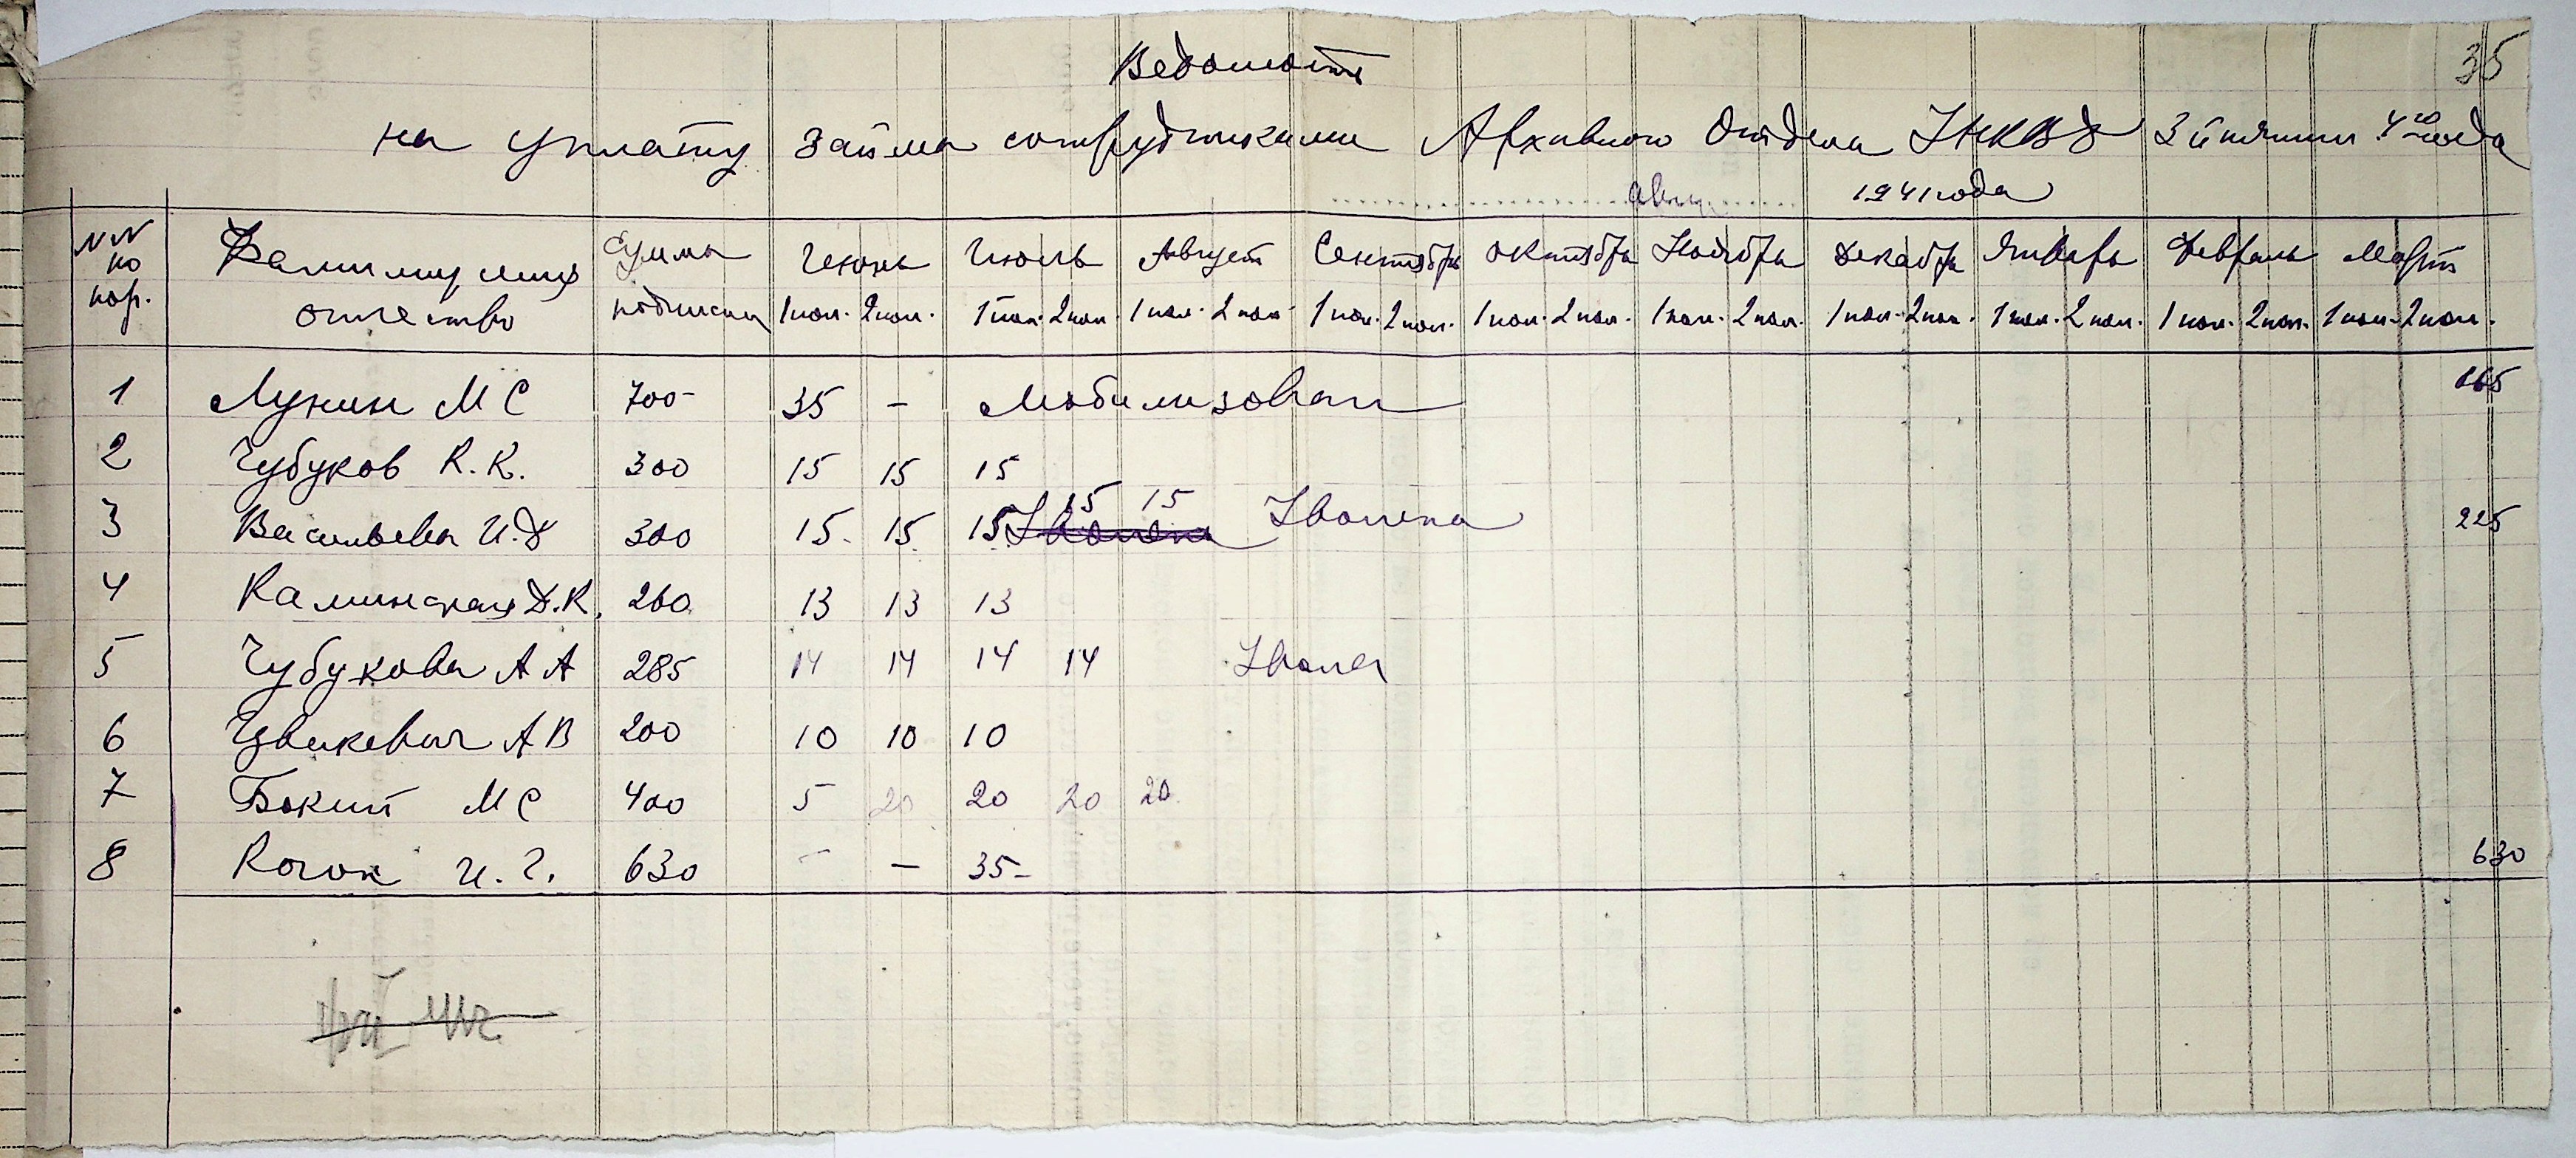 35
Ведомость
на уплату займа сотрудниками Архивного Отдела УНКВД 3й пятил. 4го года
1941 года
NN по пор. Фамилия, имя, отчество Сумма подписки Июнь Июль Август Сентябрь Октябрь Ноябрь Декабрь Январь Февраль Март
1 пол. 2 пол. 1 пол. 2 пол. 1 пол. 2 пол. 1 пол. 2 пол. 1 пол. 2 пол. 1 пол. 2 пол. 1 пол. 2 пол. 1 пол. 2 пол. 1 пол. 2 пол. 1 пол. 2 пол.
1 Лукин М С 700- 35 - Мобилизован 665
2 Чубуков К. К. 300 15 15 15
3 Васильева И. Д 300 15. 15 15 15 15 Уволена 225
4 Калинская Д. К. 260 13 13 13
5 Чубукова А А 285 14 14 14 14 Уволен
6 Цвикевич А В 200 10 10 10
7 Бокий М С 400 5 20 20 20 20
8 Кочок И. Г. 630 - - 35- 630